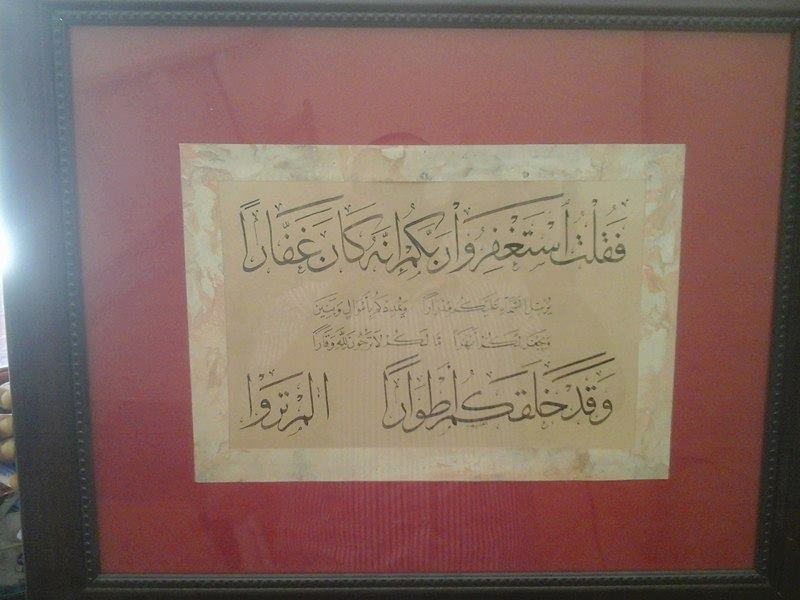 فَقُلْتُ ٱسْتَغْفِرُوا۟ رَبَّكُمْ إِنَّهُ كَانَ غَفَّارًا
يُرْسِلِ السَّمَاءَ عَلَيْكُمْ مِدْرَارًا وَيُمْدِدْكُمْ بِأَمْوَالٍ وَبَنِينَ
وَيَجْعَلْ لَكُمْ أَنْهَارًا مَا لَكُمْ لَا تَرْجُونَ لِلَّهِ وَقَارًا
وَقَدْ خَلَقَكُمْ أَطْوَارًا أَلَمْ تَرَوْا